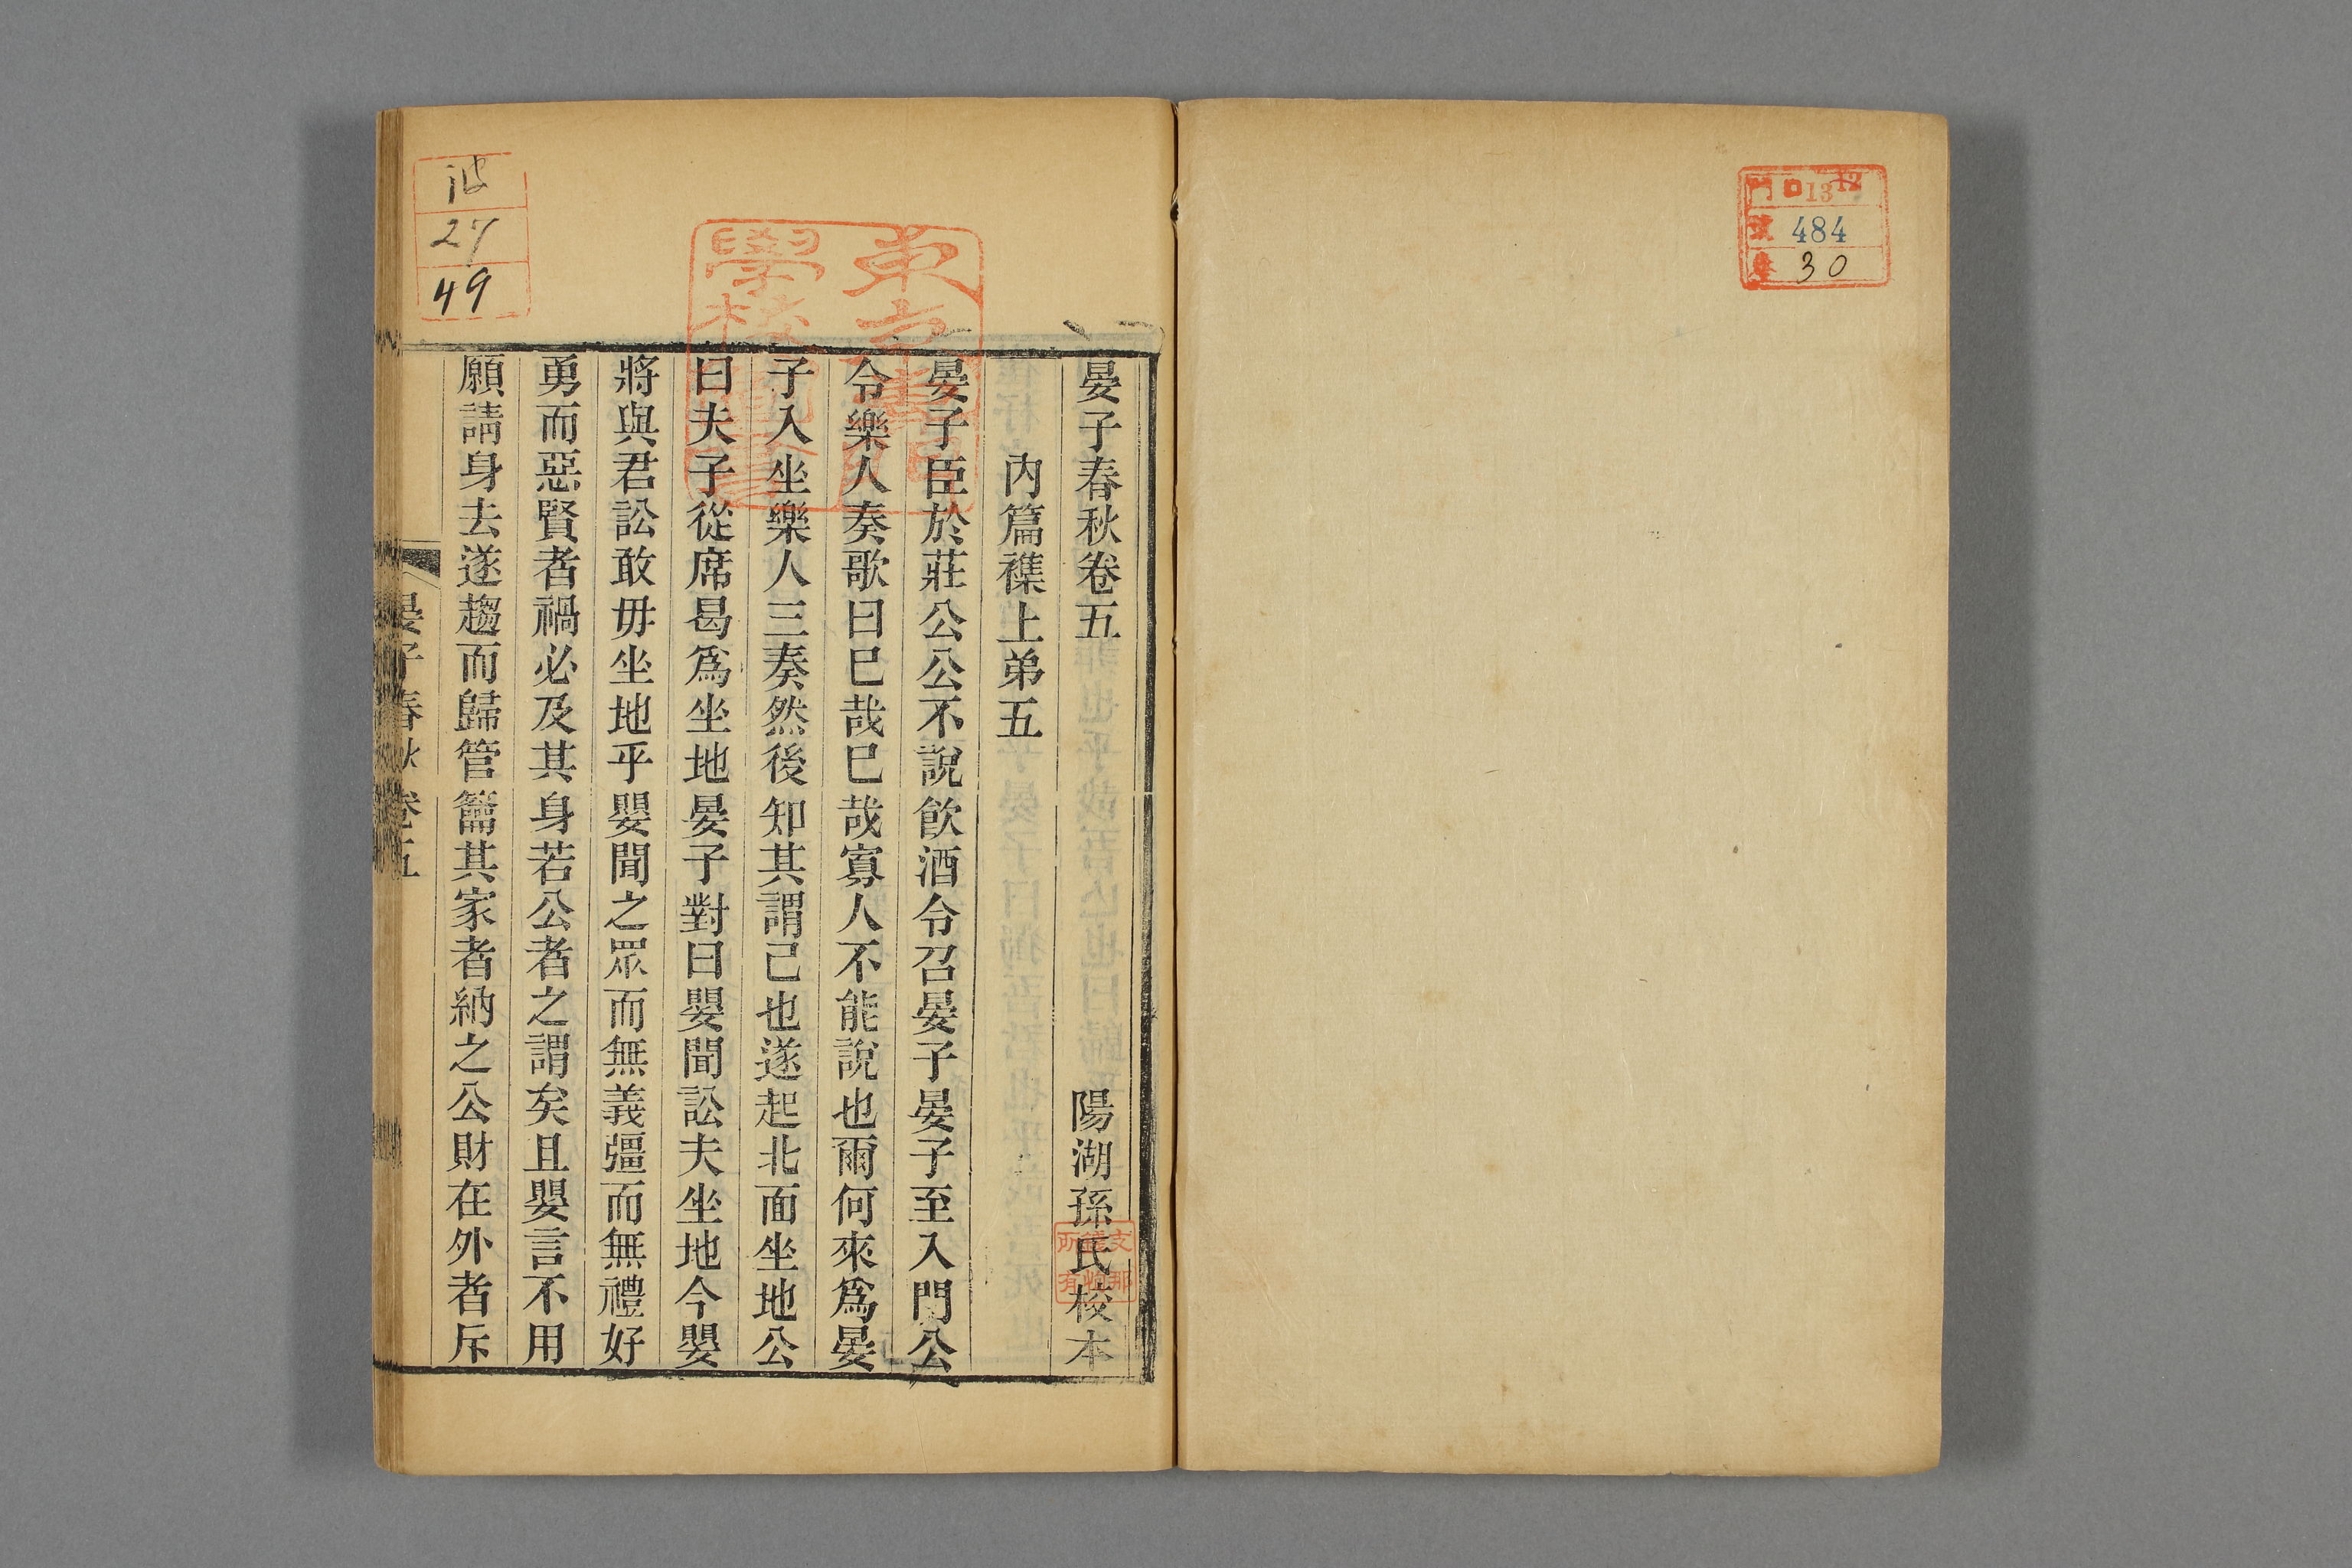 門 口13 12
號 484
卷 30
晏子春秋卷五 陽湖孫氏校本
內篇襍上弟五
晏子臣於莊公公不說飲酒令召晏子晏子至入門公
令樂人奏歌曰已哉已哉寡人不能說也爾何來爲晏
子入坐樂人三奏然後知其謂己也遂起北面坐地公
曰夫子從席曷爲坐地晏子對曰嬰聞訟夫坐地今嬰
將與君訟敢毋坐地乎嬰聞之眾而無義彊而無禮好
勇而惡賢者禍必及其身若公者之謂矣且嬰言不用
願請身去遂趨而歸管籥其家者納之公財在外者斥
晏子春秋卷五
27
49